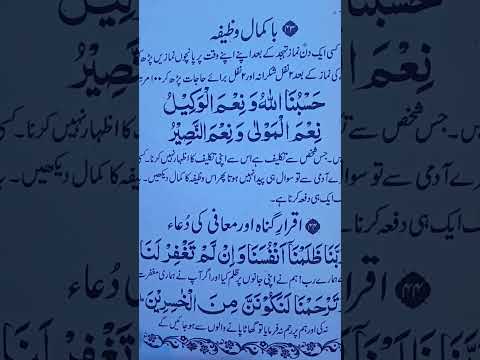 ۲۳ باکمال وظیفہ
کسی ایک دن نماز تہجد کے بعد اپنے اپنے وقت پر پانچوں نمازیں پڑھ
کی نماز کے بعد ۲ نفل شکرانہ اور ۲ نفل برائے حاجات پڑھ کر ۱۰۰ مر
حَسْبُنَا اللّٰهُ وَنِعْمَ الْوَكِيْلُ
نِعْمَ الْمَوْلٰى وَنِعْمَ النَّصِيْرُ
جس شخص سے تکلیف ہے اس سے اپنی تکلیف کا اظہار نہیں کرنا۔ کسی
رے آدمی سے تو سوال ہی پیدا نہیں ہوتا پھر اس وظیفہ کا کمال دیکھیں۔
ایک ہی دفعہ کرنا ہے۔
اقرارِ گناہ اور معافی کی دُعاء
بَّنَا ظَلَمْنَا اَنْفُسَنَا وَاِنْ لَّمْ تَغْفِرْ لَنَا
ے ہمارے رب! ہم نے اپنی جانوں پر ظلم کیا اور اگر آپ نے ہماری مغفرت
وَتَرْحَمْنَا لَنَكُوْنَنَّ مِنَ الْخٰسِرِيْنَ
نہ کی اور ہم پر رحم نہ فرمایا تو گھاٹا پانے والوں سے ہو جائیں گے